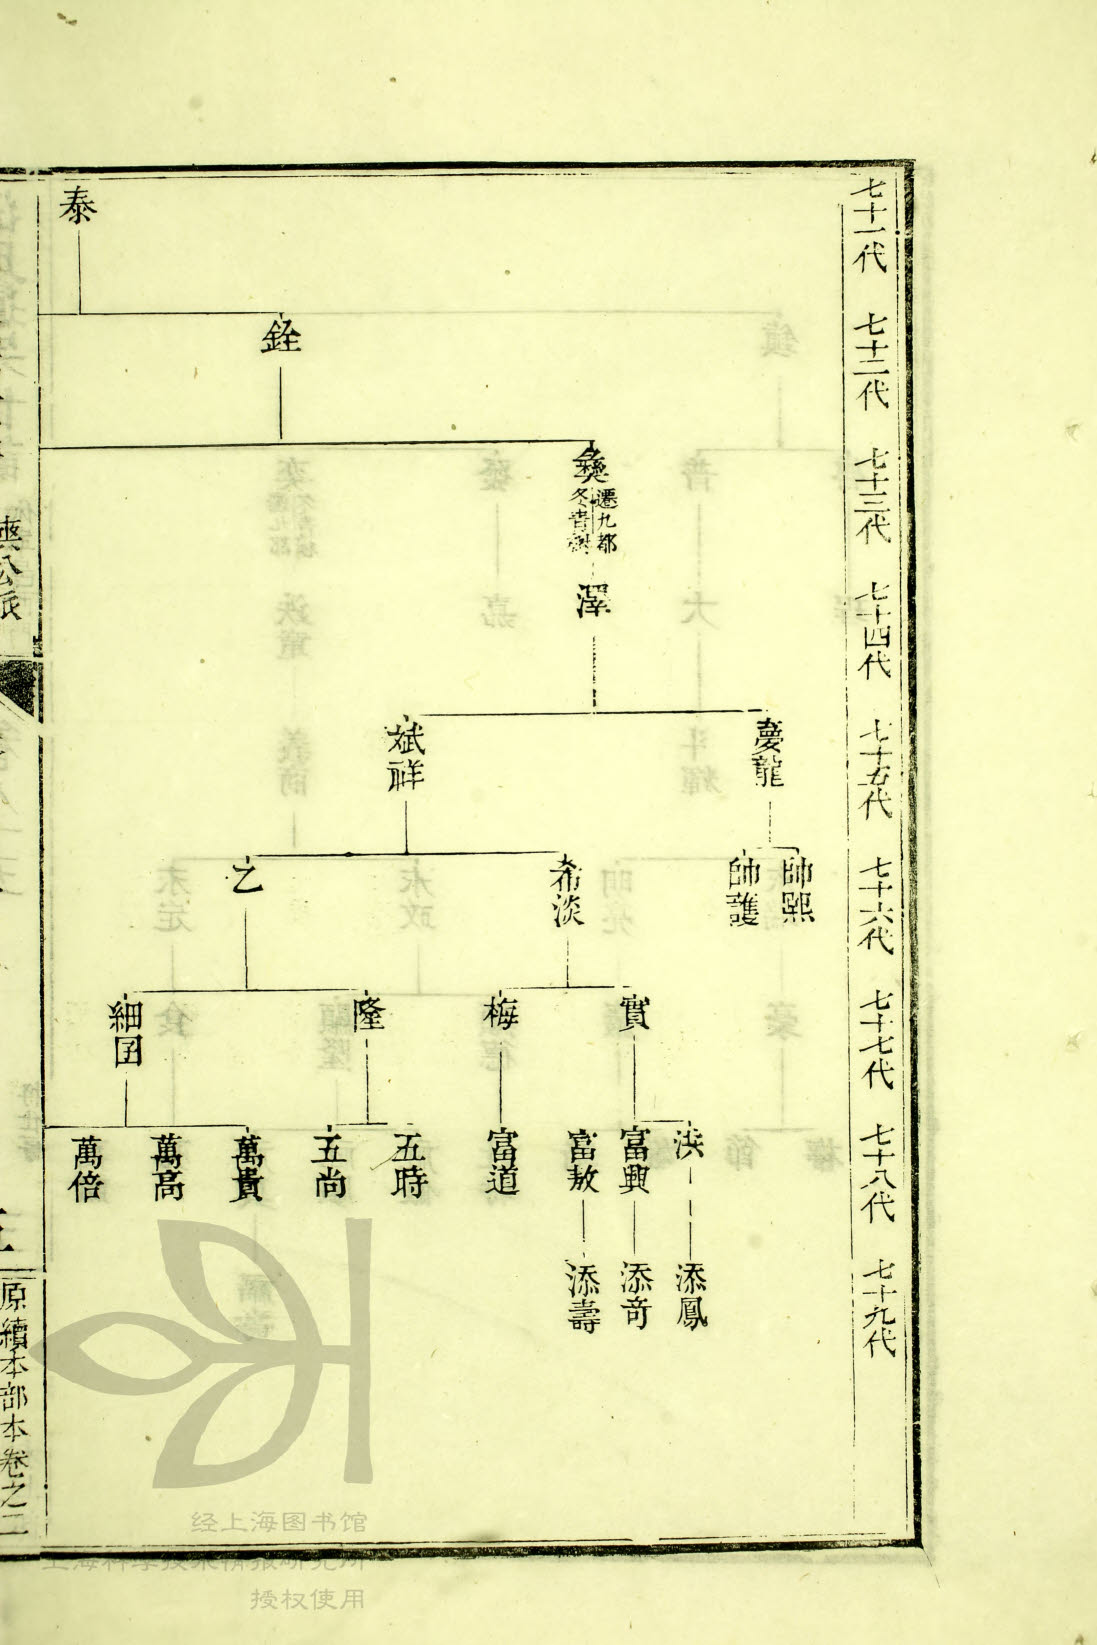 七十一代
七十二代
七十三代
七十四代
七十五代
七十六代
七十七代
七十八代
七十九代
泰
銓
遷九都
冬青樹
澤
夢龍
斌祥
帥熙
帥護
希淡
乙
實
梅
隆
細囝
洪
富興
富敖
富道
五時
五尚
萬貴
萬高
萬倍
添鳳
添奇
添壽
公派
原續本部本卷之二
经上海图书馆
上海科学技术情报研究所
授权使用